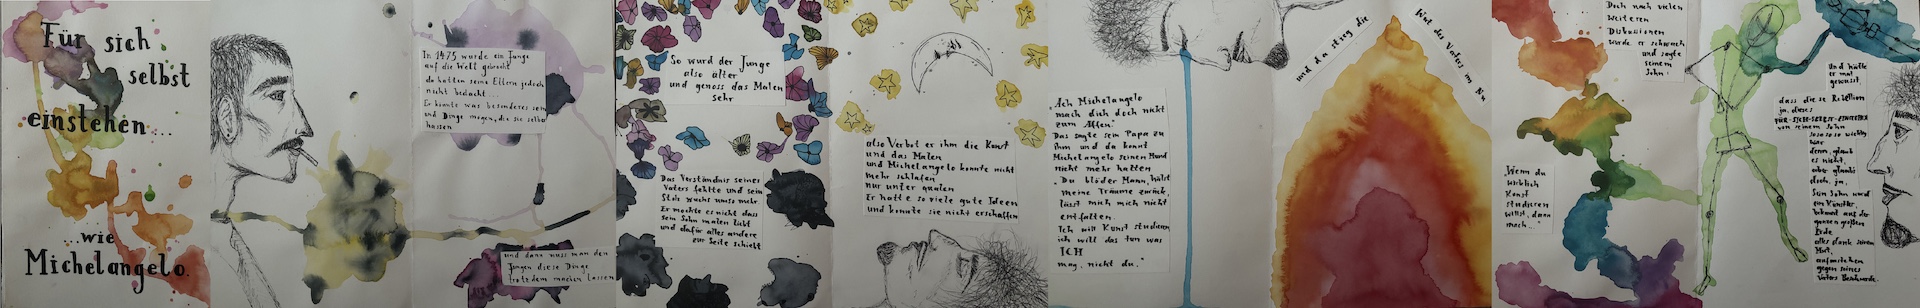 Für sich
selbst
einstehen...
...wie
Michelangelo.
In 1475 wurde ein Junge
auf die Welt gebracht
da hatten seine Eltern jedoch
nicht bedacht...
Er könnte was besonderes sein
und Dinge mögen, die sie selber
hassen
und dann muss man den
Jungen diese Dinge
trotzdem machen lassen
So wurd der Junge
also älter
und genoss das Malen
sehr
Das Verständnis seines
Vaters fehlte und sein
Stolz wuchs umso mehr.
Er mochte es nicht dass
sein Sohn malen liebt
und dafür alles andere
zur Seite schiebt
also Verbot er ihm die Kunst
und das Malen
und Michelangelo konnte nicht
mehr schlafen
nur unter qualen
Er hatte so viele gute Ideen
und konnte sie nicht erschaffen
„Ach Michelangelo
mach dich doch nicht
zum Affen."
Das sagte sein Papa zu
ihm und da konnt
Michelangelo seinen Mund
nicht mehr halten
„Du blöder Mann, hälst
meine Träume zurück,
lässt mich mich nicht
entfalten.
Ich will Kunst studieren
ich will das tun was
ICH
mag, nicht du."
und da stieg die
Wut des Vaters im Nu
„Wenn du
wirklich
Kunst
studieren
willst, dann
mach..."
Doch nach vielen
Weiteren
Diskussionen
wurde er schwach
und sagte
seinem
Sohn:
Und hätte
er mal
gewusst,
dass diese Rebellion
ja, dieses
FÜR-SICH-SELBST-EINSTEHEN
von seinem Sohn
so so so so wichtig
war
denn, glaub
es nicht,
oder glaubs
doch, ja,
Sein Sohn wurd
ein Künstler,
bekannt auf der
ganzen großen
Erde
alles dank seinem
Mut,
aufzustehen
gegen seines
Vaters Beschwerde.